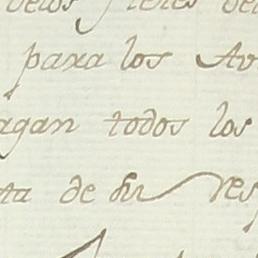 para los Av
agan todos los
ta de su res